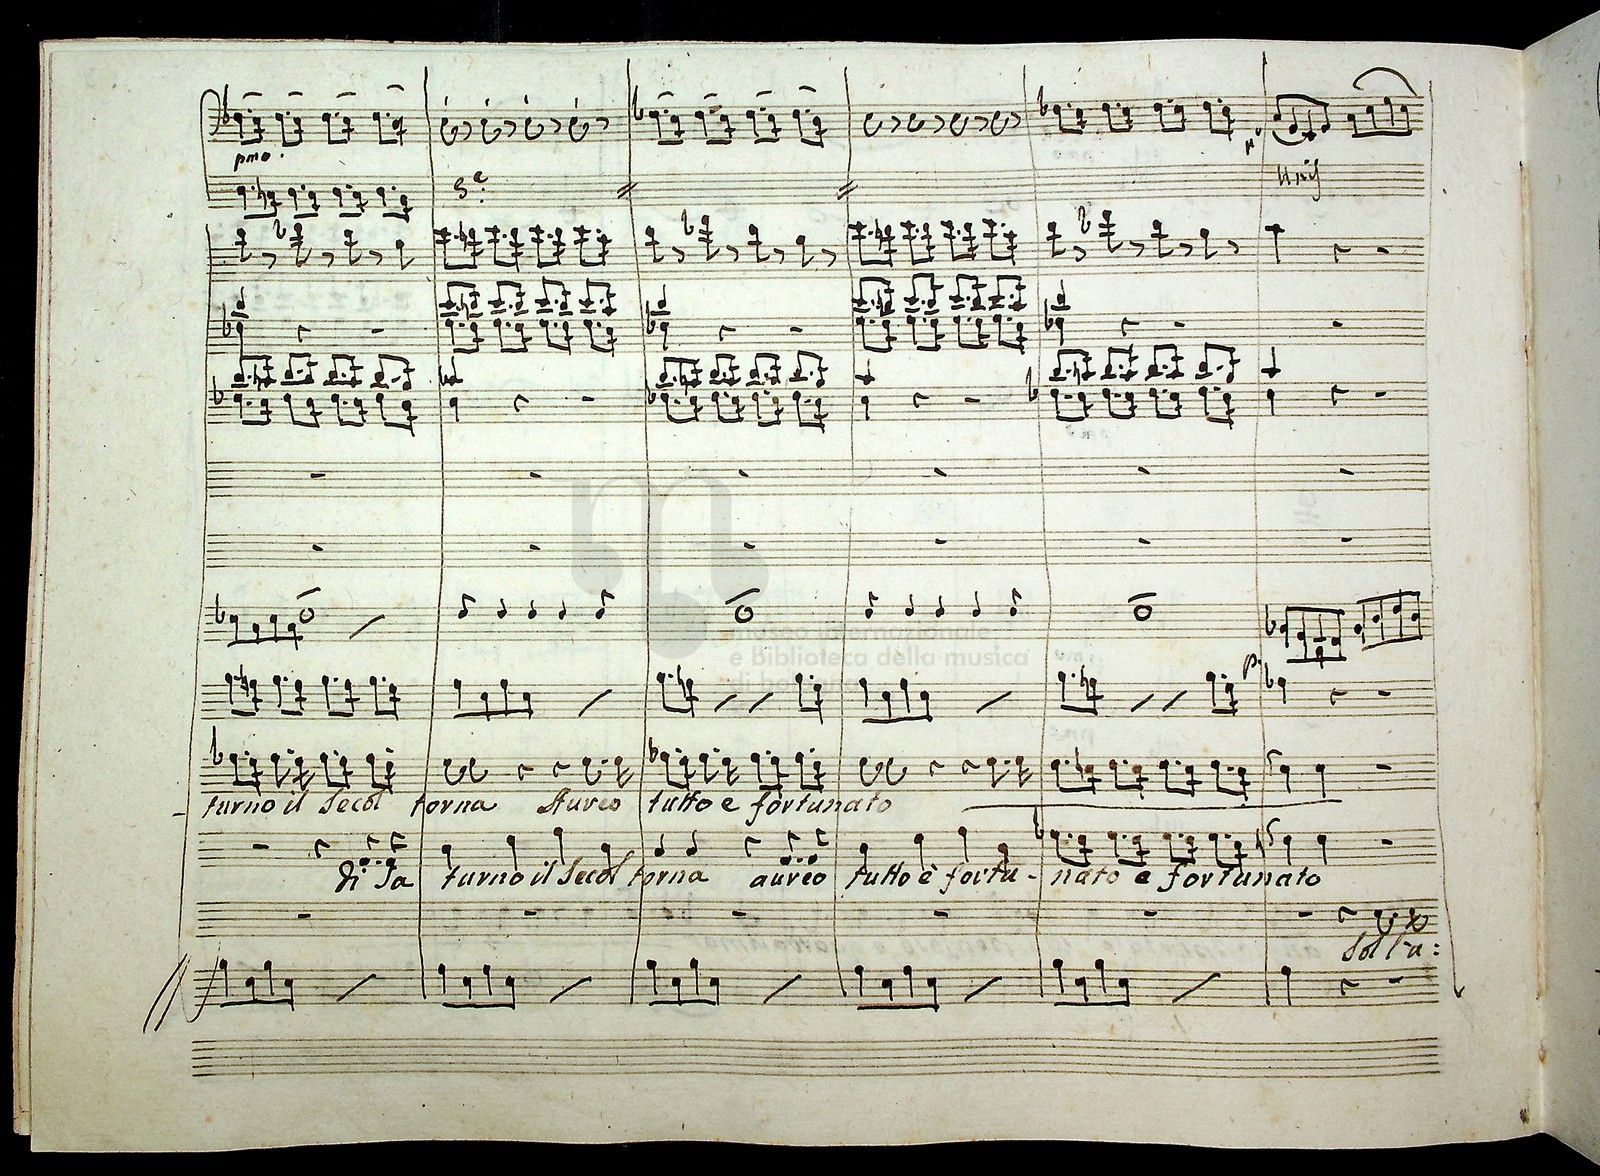 pmo.
8ª
Unis
museo internazionale
e biblioteca della musica
p.
turno il Secol torna Aureo tutto e fortunato
di Sa turno il Secol torna aureo tutto è fortu- nato e fortunato
Sol l'a: